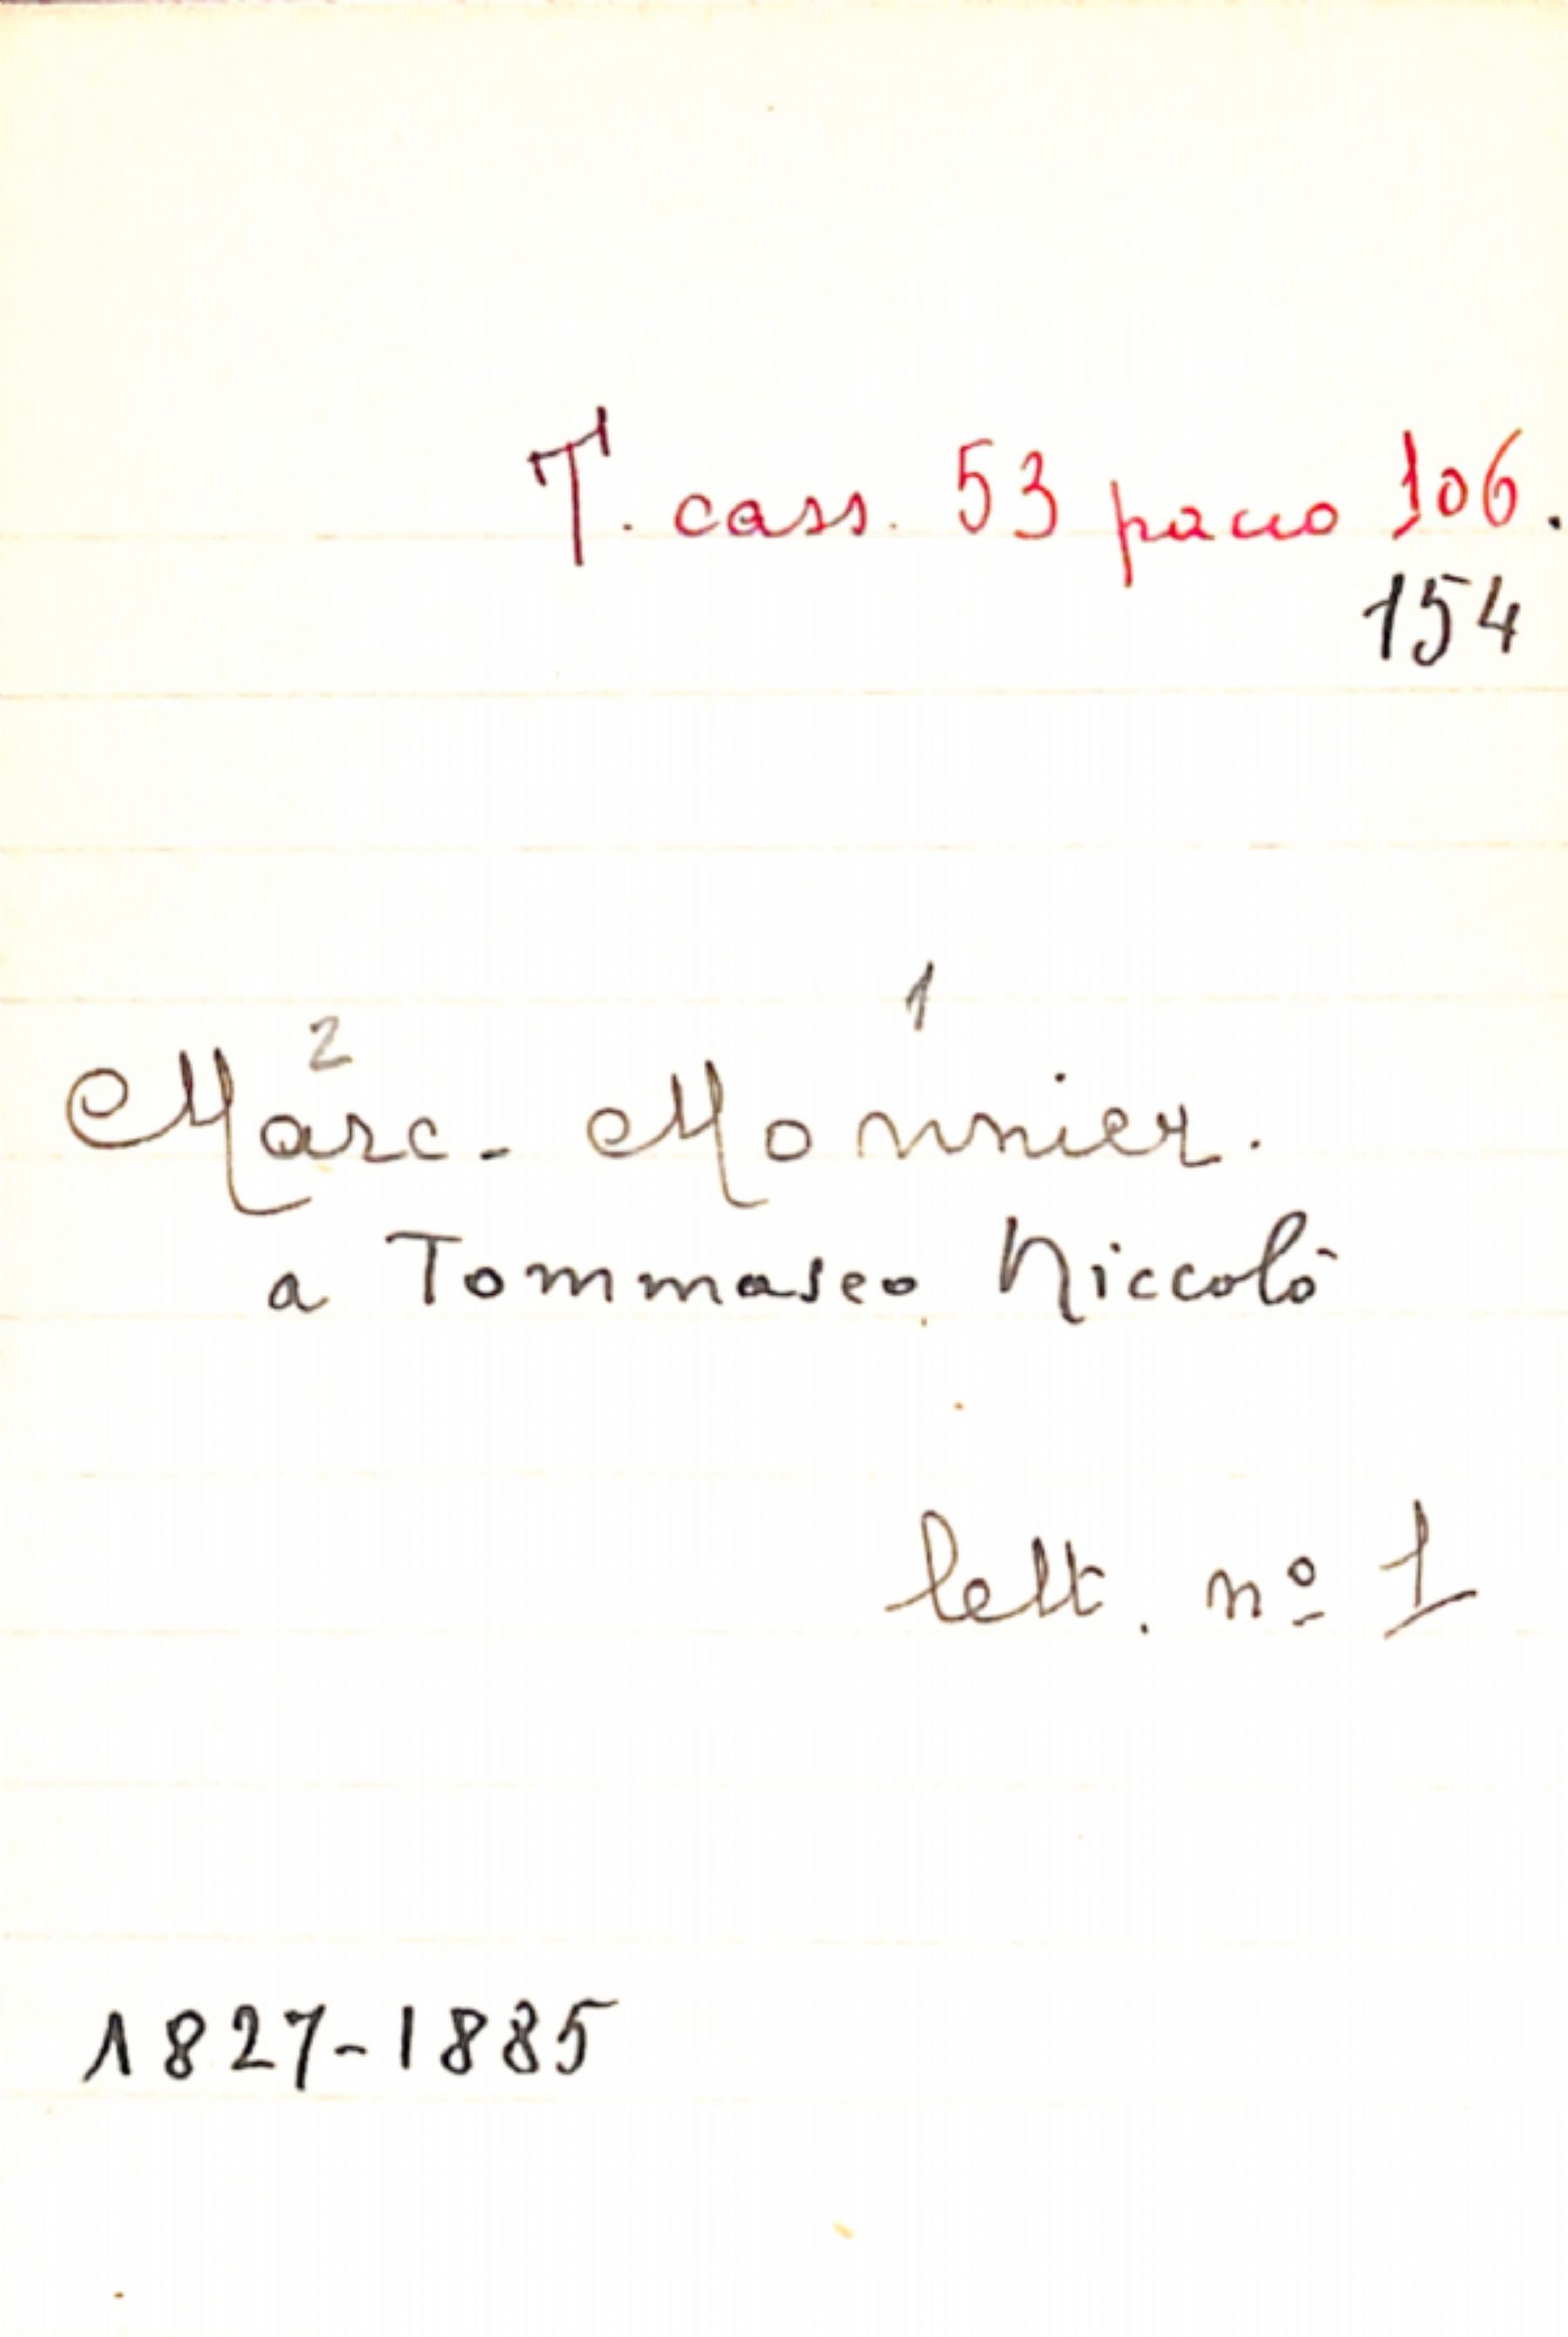 T. cass. 53 pacco 106.
154
2 1
Marc. Monnier.
a Tommaseo Niccolò
lett. nº 1
1827-1885